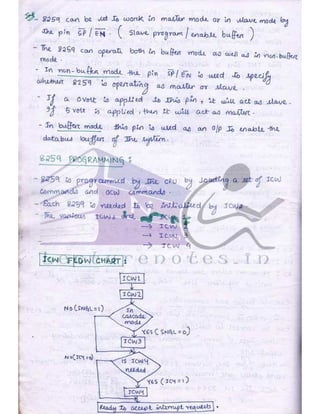 - 8259 can be set to work in master mode or in slave mode by
the pin SP / EN. ( Slave program / enable buffer )
- The 8259 can operate both in buffer mode as well as in non-buffer
mode.
- In non-buffer mode the pin SP/EN is used to specify
whether 8259 is operating as master or slave.
- If a 0 volt is applied to this pin, it will act as slave.
If 5 volt is applied, then it will act as master.
- In buffer mode this pin is used as an o/p to enable the
databus buffer of the system.
8259 PROGRAMMING :
- 8259 is programmed by the CPU by loading a set of ICW
Commands and OCW commands.
- Each 8259 is needed to be initialized by ICWs
- The various ICWs are
→ ICW
→ ICW 3
→ ICW 4
renotes.in
ICW FLOW CHART :
ICW1
ICW2
NO (SNGL=1)
In
cascade
mode
YES (SNGL=0)
ICW3
NO(IC4=0)
IS ICW4
needed
YES (IC4=1)
ICW4
Ready to accept interrupt requests.